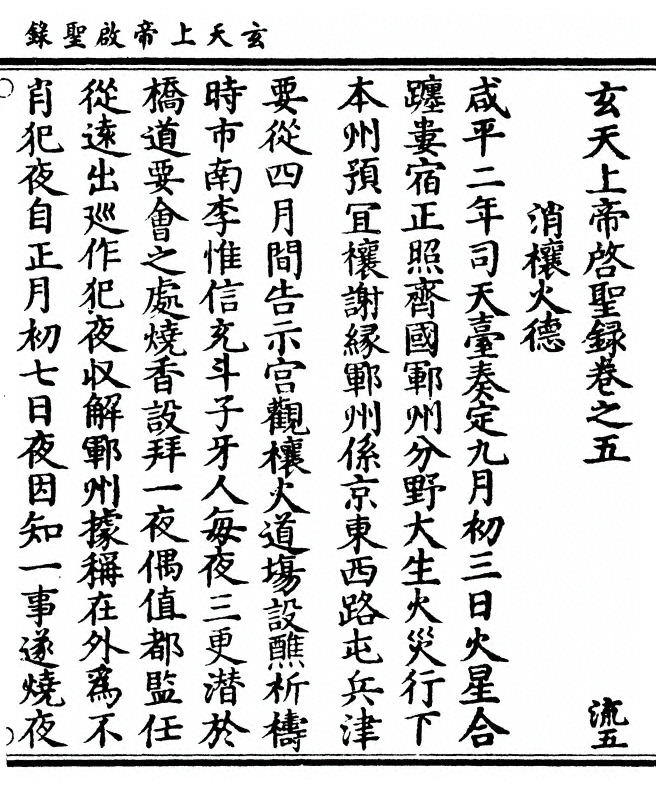 玄天上帝啟聖錄
玄天上帝啓聖録卷之五
流五
消禳火德
咸平二年司天臺奏定九月初三日火星合
躔婁宿正照齊國鄆州分野大生火災行下
本州預冝禳謝縁鄆州係京東西路屯兵津
要從四月間告示宫觀禳火道場設醮祈禱
時市南李惟信充斗子牙人每夜三更潜於
橋道要會之處燒香設拜一夜偶值都監任
從遠出廵作犯夜収解鄆州據稱在外爲不
肖犯夜自正月初七日夜因知一事遂燒夜